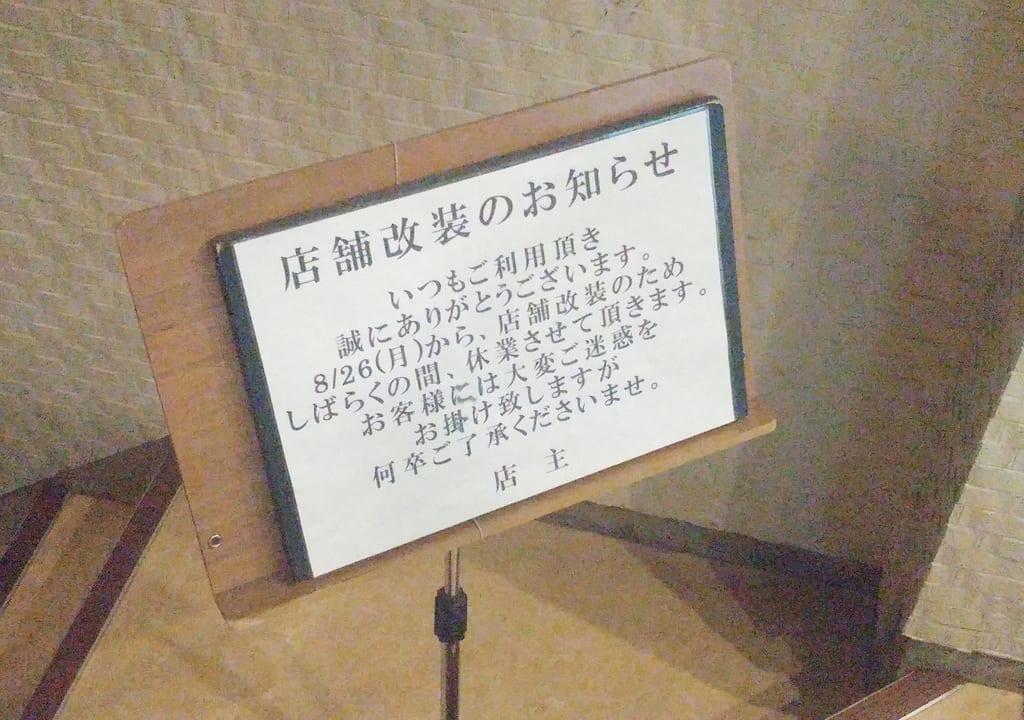 店舗改装のお知らせ
いつもご利用頂き
誠にありがとうございます。
8/26(月)から、店舗改装のため
しばらくの間、休業させて頂きます。
お客様には大変ご迷惑を
お掛け致しますが
何卒ご了承くださいませ。
店 主